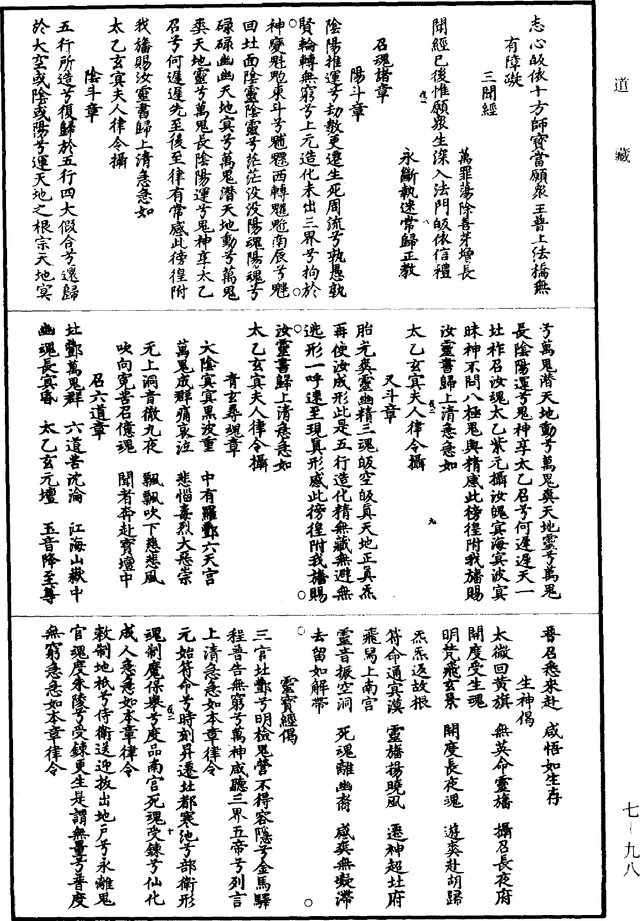 道藏
志心皈依十方師寶當願眾王普上法橋無
有障礙
三聞經
萬罪蕩除善芽增長
聞經已後惟願眾生深入法門皈依信禮
永斷執迷常歸正教
召魂諸章
陽斗章
陰陽推運兮劫數更遷生死周流兮執愚執
賢輪轉無窮兮上元造化未出三界兮拘於
神夔魁䰢東斗兮䰢䰢西轉䰢䰢南辰兮魑
回壯面陰靈陰靈兮茫茫没没陽魂陽魂兮
碌碌幽幽天地㝠兮萬鬼潛天地動兮萬鬼
奭天地靈兮萬鬼長陰陽運兮鬼神享太乙
召兮何遲遲先至後至律有常感此徬徨附
我旛賜汝靈書歸上清急急如
太乙玄㝠夫人律令攝
陰斗章
五行所造兮復歸於五行四大假合兮還歸
於大空或陰或陽兮運天地之根宗天地㝠
兮萬鬼潛天地動兮萬鬼奭天地靈兮萬鬼
長陰陽運兮鬼神享太乙召兮何遲遲天一
壯祚召汝魂太乙紫元攝汝魄㝠海㝠波㝠
昧神不問八極鬼與精感此徬徨附我旛賜
汝靈書歸上清急急如
太乙玄㝠夫人律令攝
又斗章
胎光爽靈幽精三魂皈空皈真天地正真炁
再使汝成形此是五行造化精無藏無避無
逃形一呼速至現真形感此徬徨附我旛賜
汝靈書歸上清急急如
太乙玄㝠夫人律令攝
青玄尋魂章
大陰㝠㝠黑波重　中有羅酆六天宮
萬鬼成群痛哀泣　悲惱毒烈大惡崇
无上洞音徹九夜　飄飄吹下慈悲風
吹向寃苦召億魂　聞者奔赴寶壇中
召六道章
壯酆萬鬼群　六道苦沈淪　江海山嶽中
幽魂長㝠㝠　太乙玄元壇　五音降至尊
普召悉來赴　咸悟如生存
生神偈
太微回黃旗　無英命靈旛　攝召長夜府
開度受生魂
明梵飛玄景　開度長夜魂　遊爽赴胡歸
炁炁返故根
符命通㝠漠　靈旛揚曉風　遷神超壯府
飛舄上南宮
靈音振空洞　死魂離幽裔　感爽無凝滯
去留如解帶
靈寶經偈
三官壯酆兮明檢鬼營不得容隱兮金馬驛
程普告無窮兮萬神咸聽三界五帝兮列言
上清急急如本章律令
元始符命兮時刻昇遷壯都寒池兮部衛形
魂制魔保舉兮度品南宮死魂受鍊兮仙化
成人急急如本章律令
敕制地祇兮侍衛送迎拔出地戶兮永離鬼
官魂度朱陵兮受鍊更生是謂無量兮普度
無窮急急如本章律令
七–九八